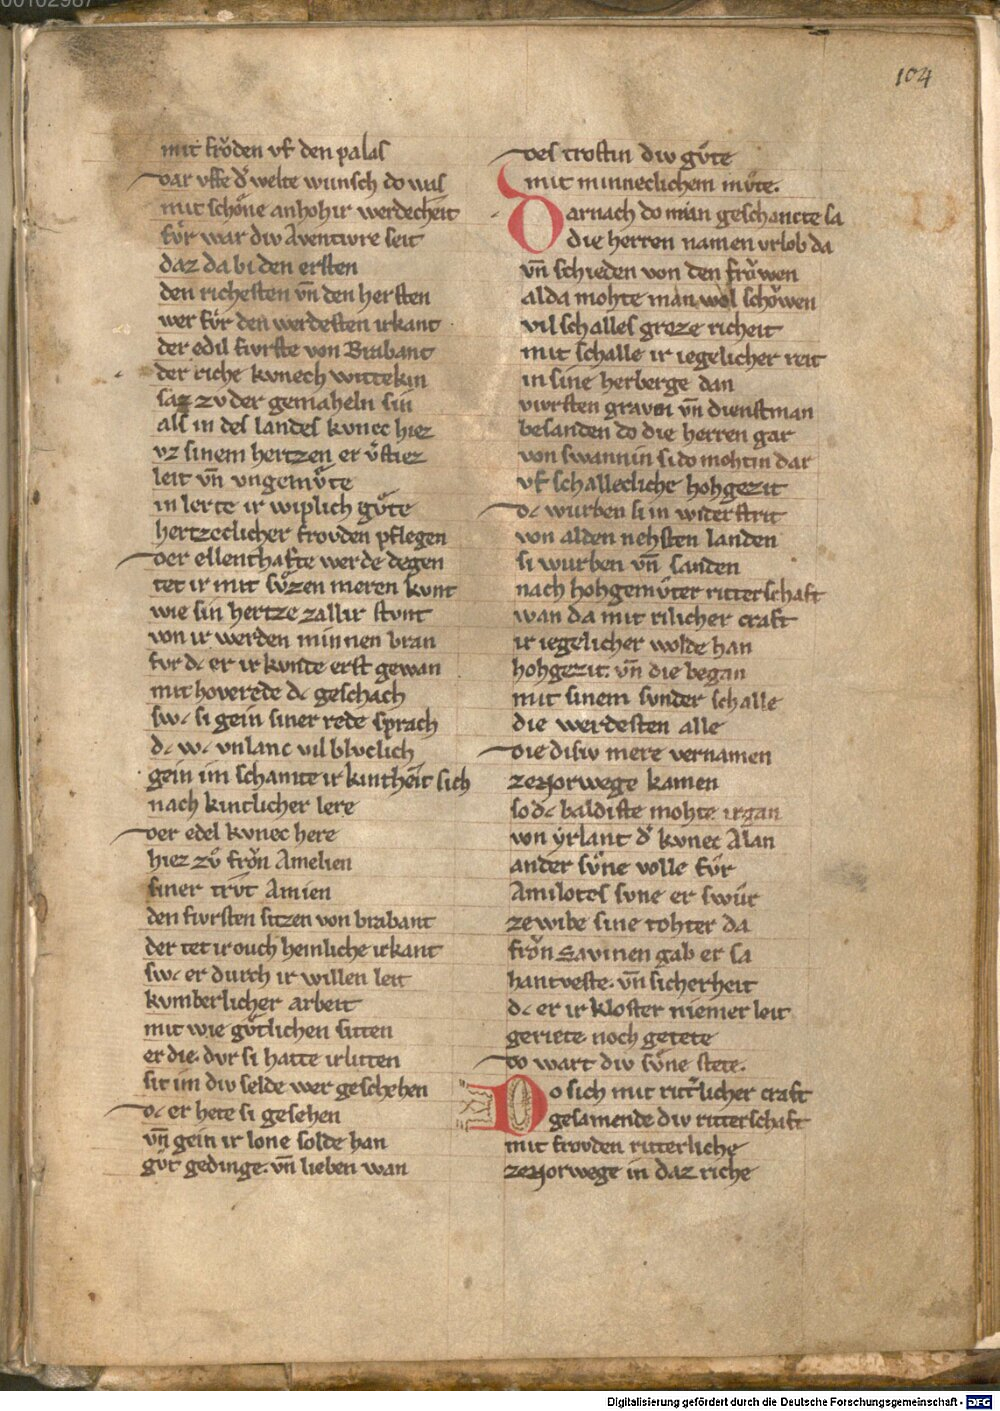 104
mit frǒden vf den palas
dar vffe d̾ welte wunsch do was
mit schǒne an hoh ir werdecheit
fv̊r war div Aventivre seit
daz da bi den ersten
den richesten vn̄ den hersten
wer fv̊r den werdesten irkant
der edil fivrste von Brabant
der riche kvnech wittekin
saz zv̊ der gemaheln sin
als in des landes kvnec hiez
vz sinem hertzen er v̊stiez
leit vn̄ vngemv̊te
in lerte ir wiplich gv̊te
hertzeclicher frovden pflegen
der ellenthafte werde degen
tet ir mit sv̊zen meren kvnt
wie sin hertze zallir stvnt
von ir werden minnen bran
fvr dc er ir kvnde erst gewan
mit hoverede dc geschach
swc si gein siner rede sprach
dc wc vnlanc vil blvclich
gein im schamte ir kintheit sich
nach kintlicher lere
der edel kvnec here
hiez zv̊ frǒn Amelien
siner trvt Amien
den fivrsten sitzen von brabant
der tet ir ouch heinliche irkant
swc er durch ir willen leit
kvmberlicher arbeit
mit wie gv̊tlichen sitten
er die dvr si hatte irlitten
sit im div selde wer geschehen
dc er hete si gesehen
vn̄ gein ir lone solde han
gv̊t gedinge vn̄ lieben wan
des trostin div gv̊te
mit minneclichem mv̊te.
Darnach do man geschancte sa
die herren namen vrlob da
vn̄ schieden von den frǒwen
alda mohte man wol schǒwen
vil schalles groze richeit
mit schalle ir iegelicher reit
in sine herberge dan
vivrsten graven vn̄ dienstman
besanden do die herren gar
von swannin si do mohtin dar
vf schallecliche hohgezit
dc wurben si in widerstrit
von alden nehsten landen
si wurben vn̄ sanden
nach hohgemv̊ter ritterschaft
wan da mit rilicher craft
ir iegelicher wolde han
hohgezit. vn̄ die began
mit sinem svnder schalle
die werdesten alle
die disiv mere vernamen
ze Norwege kamen
so dc baldiste mohte irgan
von ẏrlant d̾ kvnec Alan
ander sv̊ne volle fv̊r
Amilotes svne er swůr
ze wibe sine tohter da
frǒn Savinen gab er sa
hantveste. vn̄ sicherheit
dc er ir kloster niemer leit
geriete noch getete
do wart div sv̊ne stete.
Do sich mit ritt̾licher craft
gesamende div ritterschaft
mit frovden ritterliche
ze Norwege in daz riche
Digitalisierung gefördert durch die Deutsche Forschungsgemeinschaft - DFG